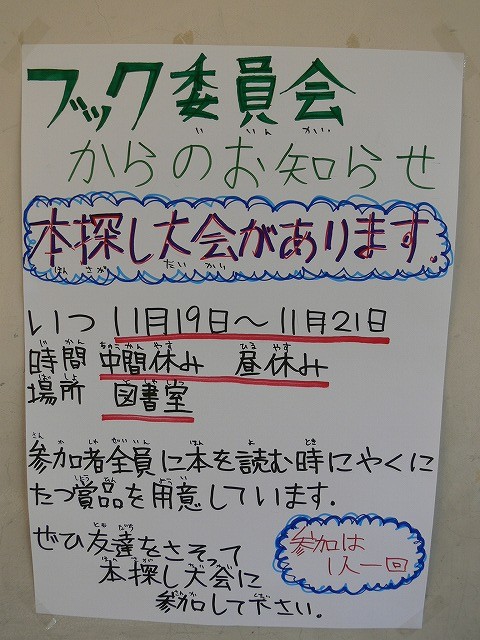 ブック委員会
からのお知らせ
本探し大会があります.
いつ 11月19日～11月21日
時間 中間休み 昼休み
場所 図書室
参加者全員に本を読む時にやくに
たつ賞品を用意しています.
ぜひ友達をさそって
本探し大会に
参加して下さい.
参加は
1人一回